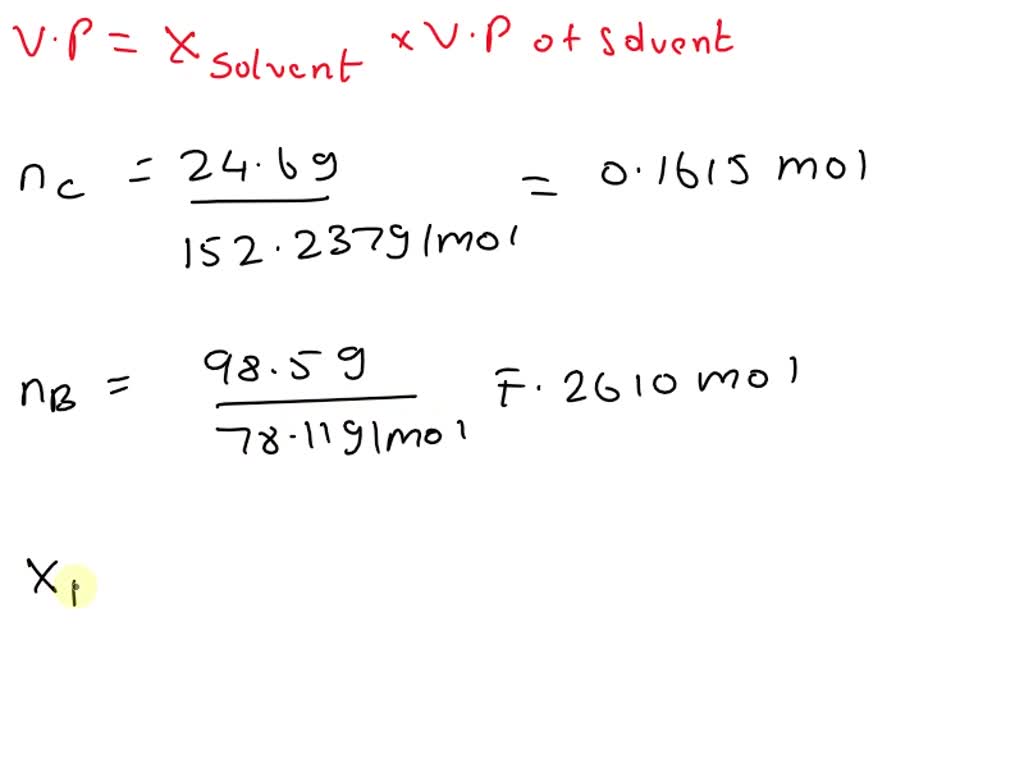 V.P = X solvent x V.P of solvent
nC = 24.6g / 152.237g/mol = 0.1615 mol
nB = 98.5g / 78.11g/mol F.2610 mol
X1